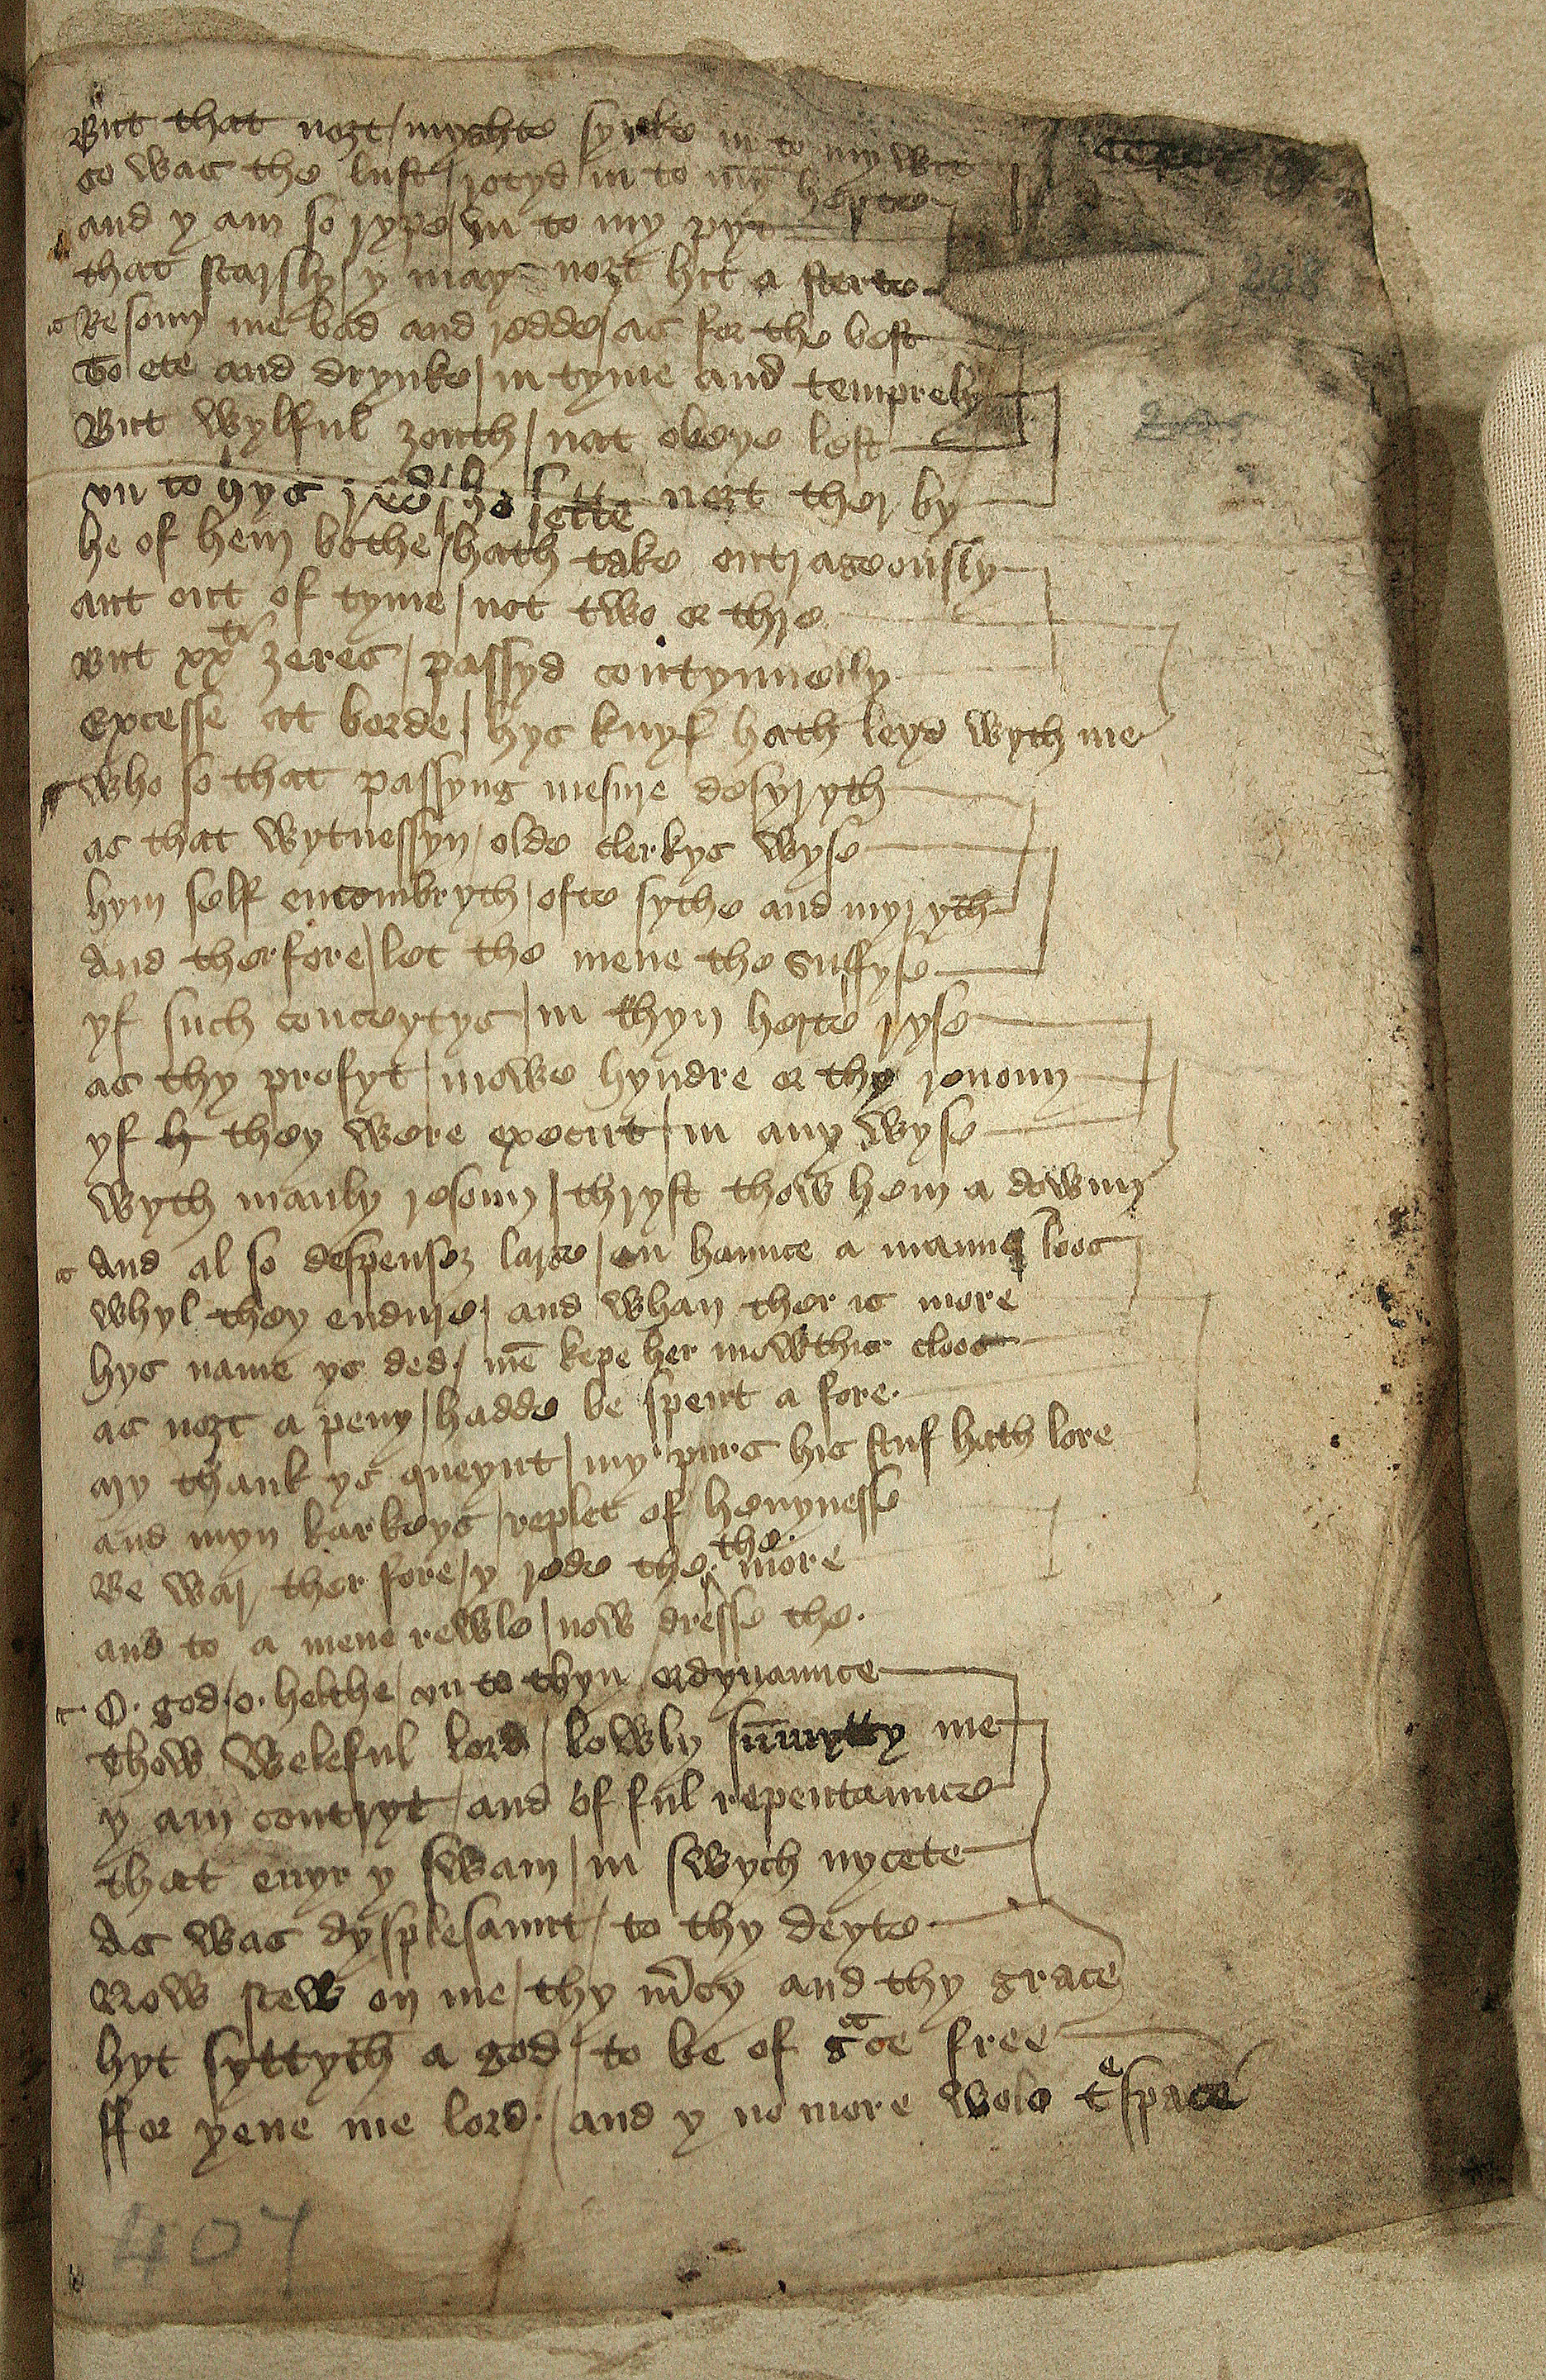 But that nozt / myghte synke in to my wit
so was the lust / rotyd in to my herte
and y am so rype / vn to my pyt
that scarsly / y may nozt hit a sterte
Resoun me bad and redde / as for the best
To ete and drynke / in tyme and temprely
But wylful zouth / nat obeye lest
vn to hys reed / he sette nozt ther by
he of hem bothe / hath take outrageously
aut out of tyme / not two or thre
But xxti zeres / passyd contynuelly
Excesse at borde / hys knyf hath leyd wyth me
Who so that passyng mesure desyryth
as that wytnessyn / olde clerkys wyse
hym self encombryth / ofte sythe and myryth
And therfore / let the mene the suffyse
yf such conceytys / in thyn herte ryse
as thy profyt / mowe hyndre or thy renoun
yf h they were execut / in any wyse
wyth manly resoun / thryst thow hem a down
And al so despensez large / en haunce a mannes loos
whyl they endure / and whan ther is more
hys name ys ded / mē kepe her mowthis cloos
as nozt a peny / hadde be spent a fore.
my thank ys queynt / my purs his stuf hath lore
and myn karkeys / replet of heuynesse
Be war ther fore / y rede the. the. more
and to a mene rewle / now dresse the.
O. god. / o. helthe / vn to thyn ordynaunce
Thow weleful lord / lowly me
y am contryt / and of ful repentaunce
that euyr y swam / in swych nycete
As was dysplesaunt / to thy deyte
Now scew on me / thy m̄cy and thy grace
hyt syttyth a god / to be of gace free
ffor yeue me lord. / and y no more wole tespace
208
407